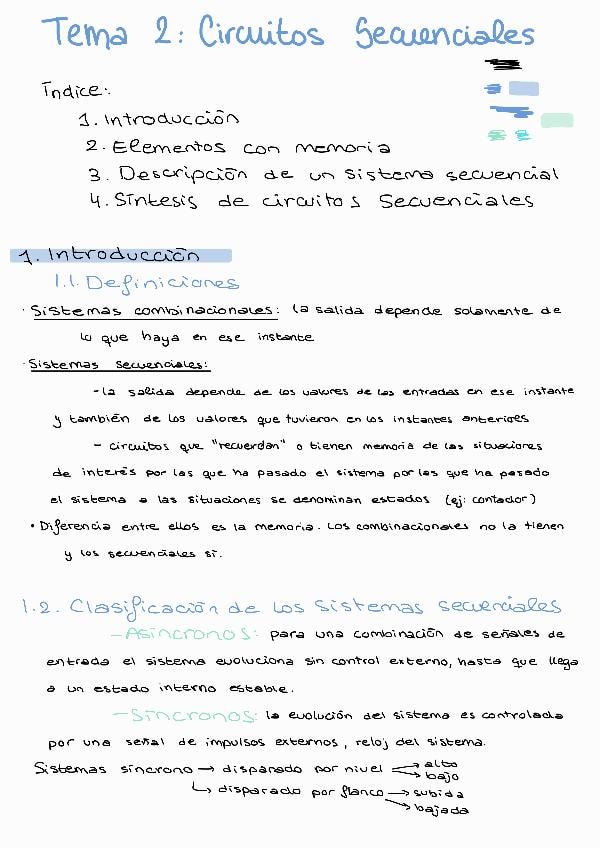 Tema 2: Circuitos Secuenciales
Índice:
1. Introducción
2. Elementos con memoria
3. Descripción de un sistema secuencial
4. Síntesis de circuitos secuenciales
1. Introducción
1.1. Definiciones
· Sistemas combinacionales: la salida depende solamente de
lo que haya en ese instante
· Sistemas secuenciales:
- la salida depende de los valores de las entradas en ese instante
y también de los valores que tuvieron en los instantes anteriores
- circuitos que "recuerdan" o tienen memoria de las situaciones
de interés por las que ha pasado el sistema por las que ha pasado
el sistema a las situaciones se denominan estados (ej: contador)
• Diferencia entre ellos es la memoria. Los combinacionales no la tienen
y los secuenciales sí.
1.2. Clasificación de los sistemas secuenciales
- Asíncronos: para una combinación de señales de
entrada el sistema evoluciona sin control externo, hasta que llega
a un estado interno estable.
- Síncronos: la evolución del sistema es controlada
por una señal de impulsos externos, reloj del sistema.
Sistemas síncrono → disparado por nivel → alto
→ bajo
↳ disparado por flanco → subida
→ bajada